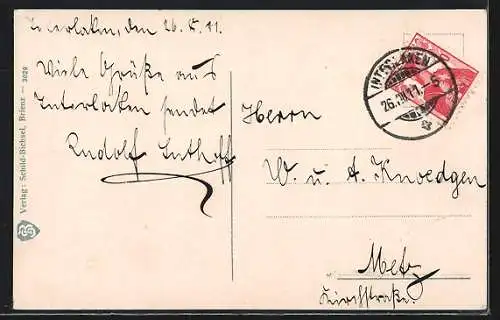 Interlaken, den 26.V.11.
Viele Grüße aus
Interlaken sendet
Rudolf Luthoff
Herrn
W. u. A. Knoedgen
Metz
Kirchstraße.
INTERLAKEN
26.V.11.
Verlag: Schild-Bichsel, Brienz — 3029